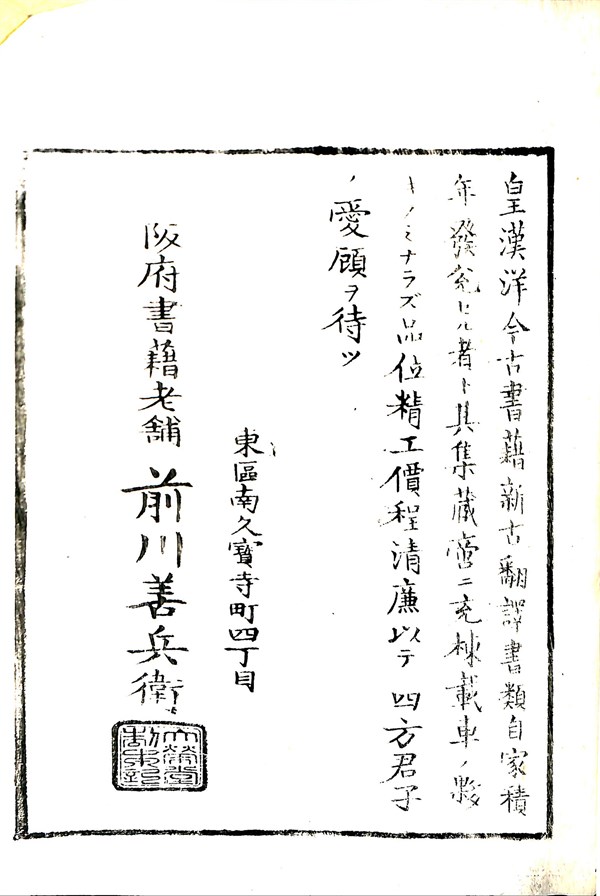 皇漢洋今古書藉新古翻譯書類自家積
年發兌ヒル者ト其集藏啻ニ充棟載車ノ夥
ノミナラズ品位精工價程清廉以テ四方君子
ノ愛顧ヲ待ツ
東區南久寶寺町四丁目
阪府書藉老舗 前川善兵衛